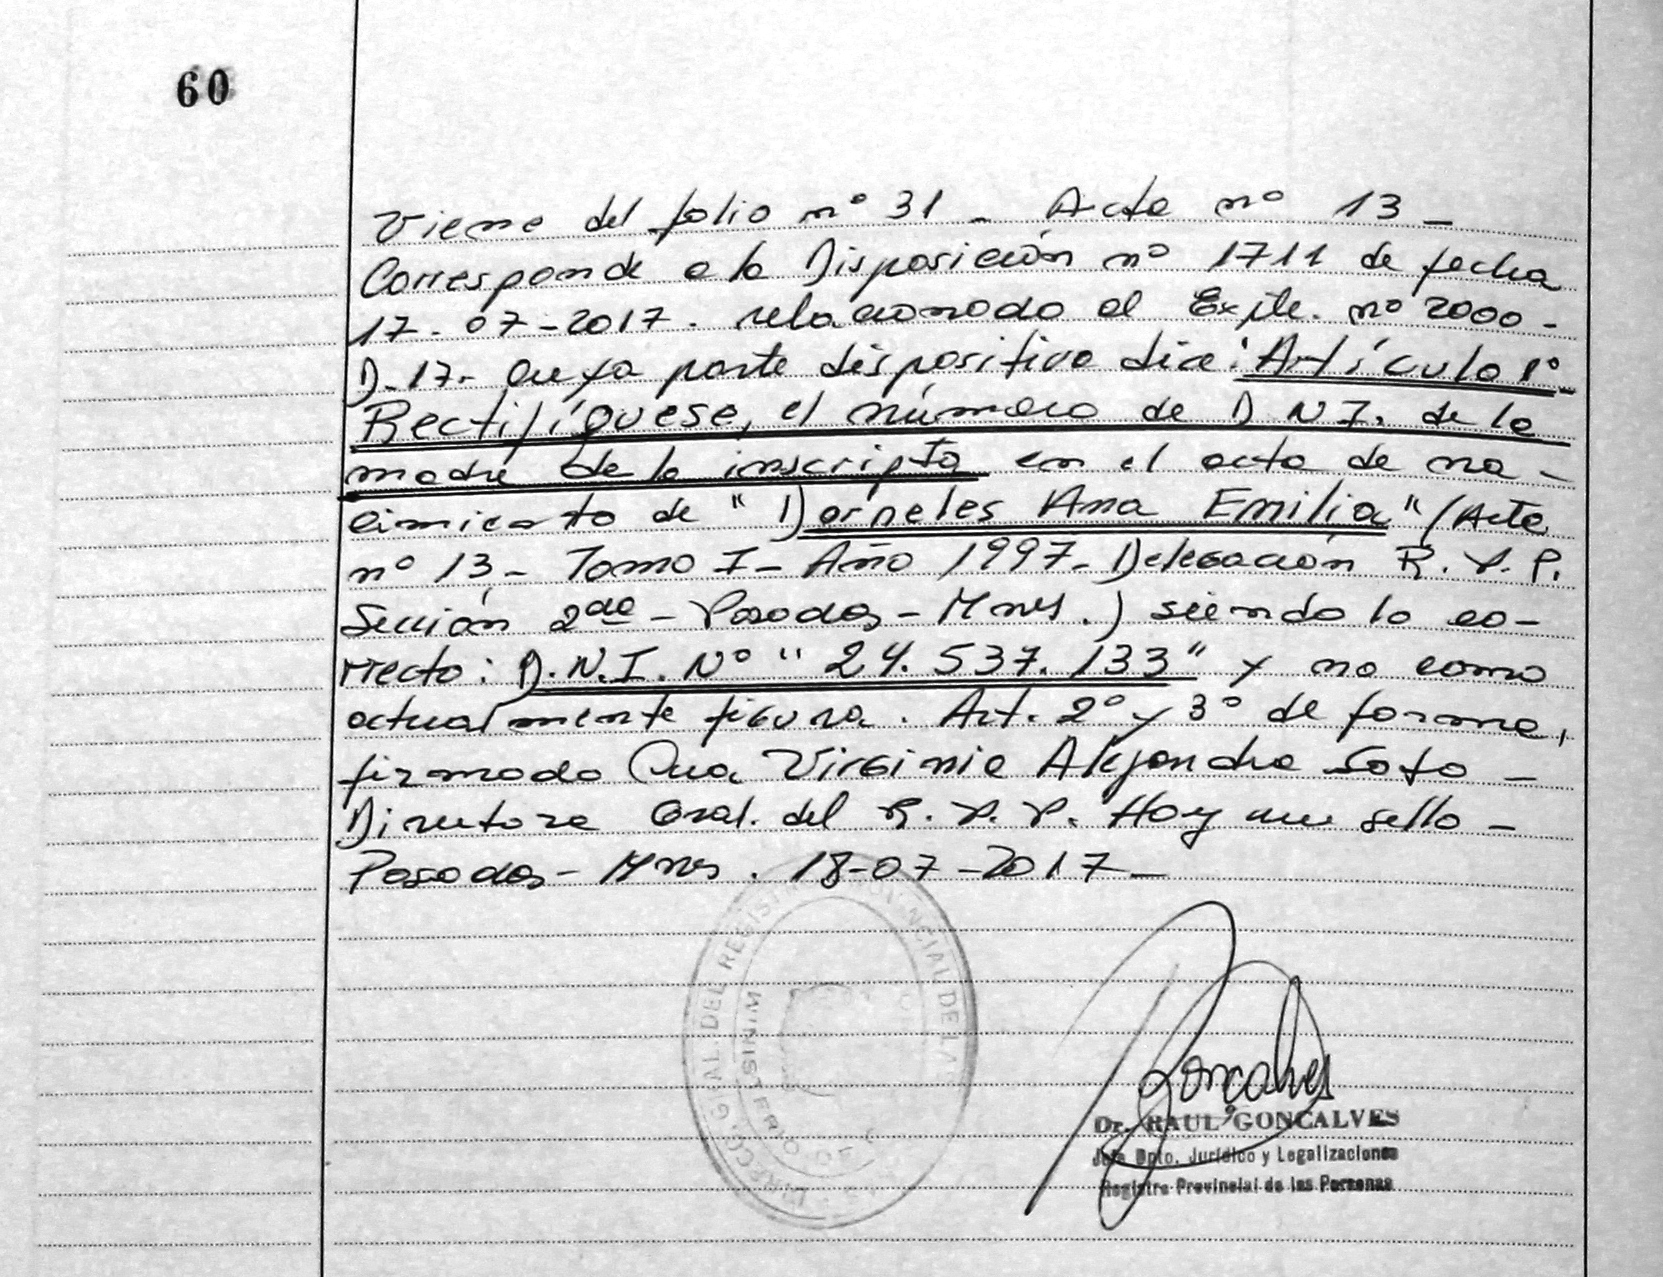 60
Viene del folio nº 31 - Acta nº 13 -
Corresponde a la Disposición nº 1711 de fecha
17-07-2017. relacionado al Expte. nº 2000-
D-17- cuya parte dispositiva dice: Artículo 1º-
Rectifíquese, el número de D.N.I. de la
madre de la inscripta en el acta de na-
cimiento de "Dorneles Ana Emilia" (Acta
nº 13 - Tomo I - Año 1997 - Delegación R.P.P.
Sección 2da - Posadas - Mnes.) siendo lo co-
rrecto: D.N.I. Nº "24.537.133" y no como
actualmente figura. Art. 2º y 3º de forma,
firmado Virginia Alejandra Soto -
Directora Gral. del R.P.P. Hay un sello -
Posadas - Mnes. 18-07-2017 -
DIRECC. GRAL. DEL REGISTRO PROVINCIAL DE LAS
MINISTERIO DE
Goncalves
Dr. RAUL GONCALVES
Jefe Dpto. Jurídico y Legalizaciones
Registro Provincial de las Personas